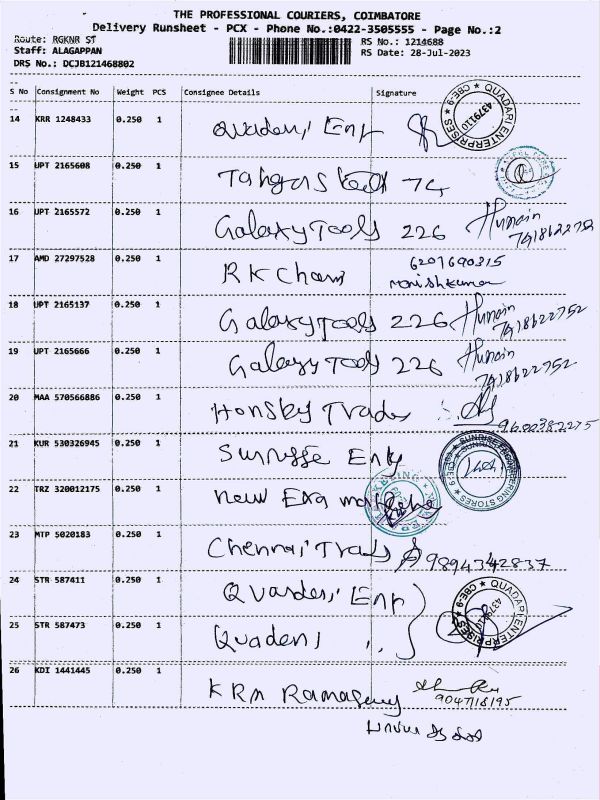 THE PROFESSIONAL COURIERS, COIMBATORE
Delivery Runsheet - PCX - Phone No.:0422-3505555 - Page No.:2
Route: RGKNR ST RS No.: 1214688
Staff: ALAGAPPAN RS Date: 28-Jul-2023
DRS No.: DCJB121468802
S No Consignment No Weight PCS Consignee Details Signature
14 KRR 1248433 0.250 1 Quaderi Enp QUADARI ENTERPRISES CBE-9 4379110
15 UPT 2165608 0.250 1 74
16 UPT 2165572 0.250 1 Galaxy Tools 226 Hunain 7418622752
17 AMD 27297528 0.250 1 R K Cham 6201690315
manishkumar
18 UPT 2165137 0.250 1 Galaxy Tools 226 Hunain 7418622752
19 UPT 2165666 0.250 1 Galaxy Tools 226 Hunain 7418622752
20 MAA 570566886 0.250 1 Honsby Trades 9600382275
21 KUR 530326945 0.250 1 Enp SUNRISE ENGINEERING STORES CBE-9
22 TRZ 320012175 0.250 1 new Era
23 MTP 5020183 0.250 1 Chennai Trads 9894342837
24 STR 587411 0.250 1 Quaderi Enp QUADARI ENTERPRISES CBE-9 4379110
25 STR 587473 0.250 1 Quaderi ,,
26 KDI 1441445 0.250 1 KRM Ramasamy